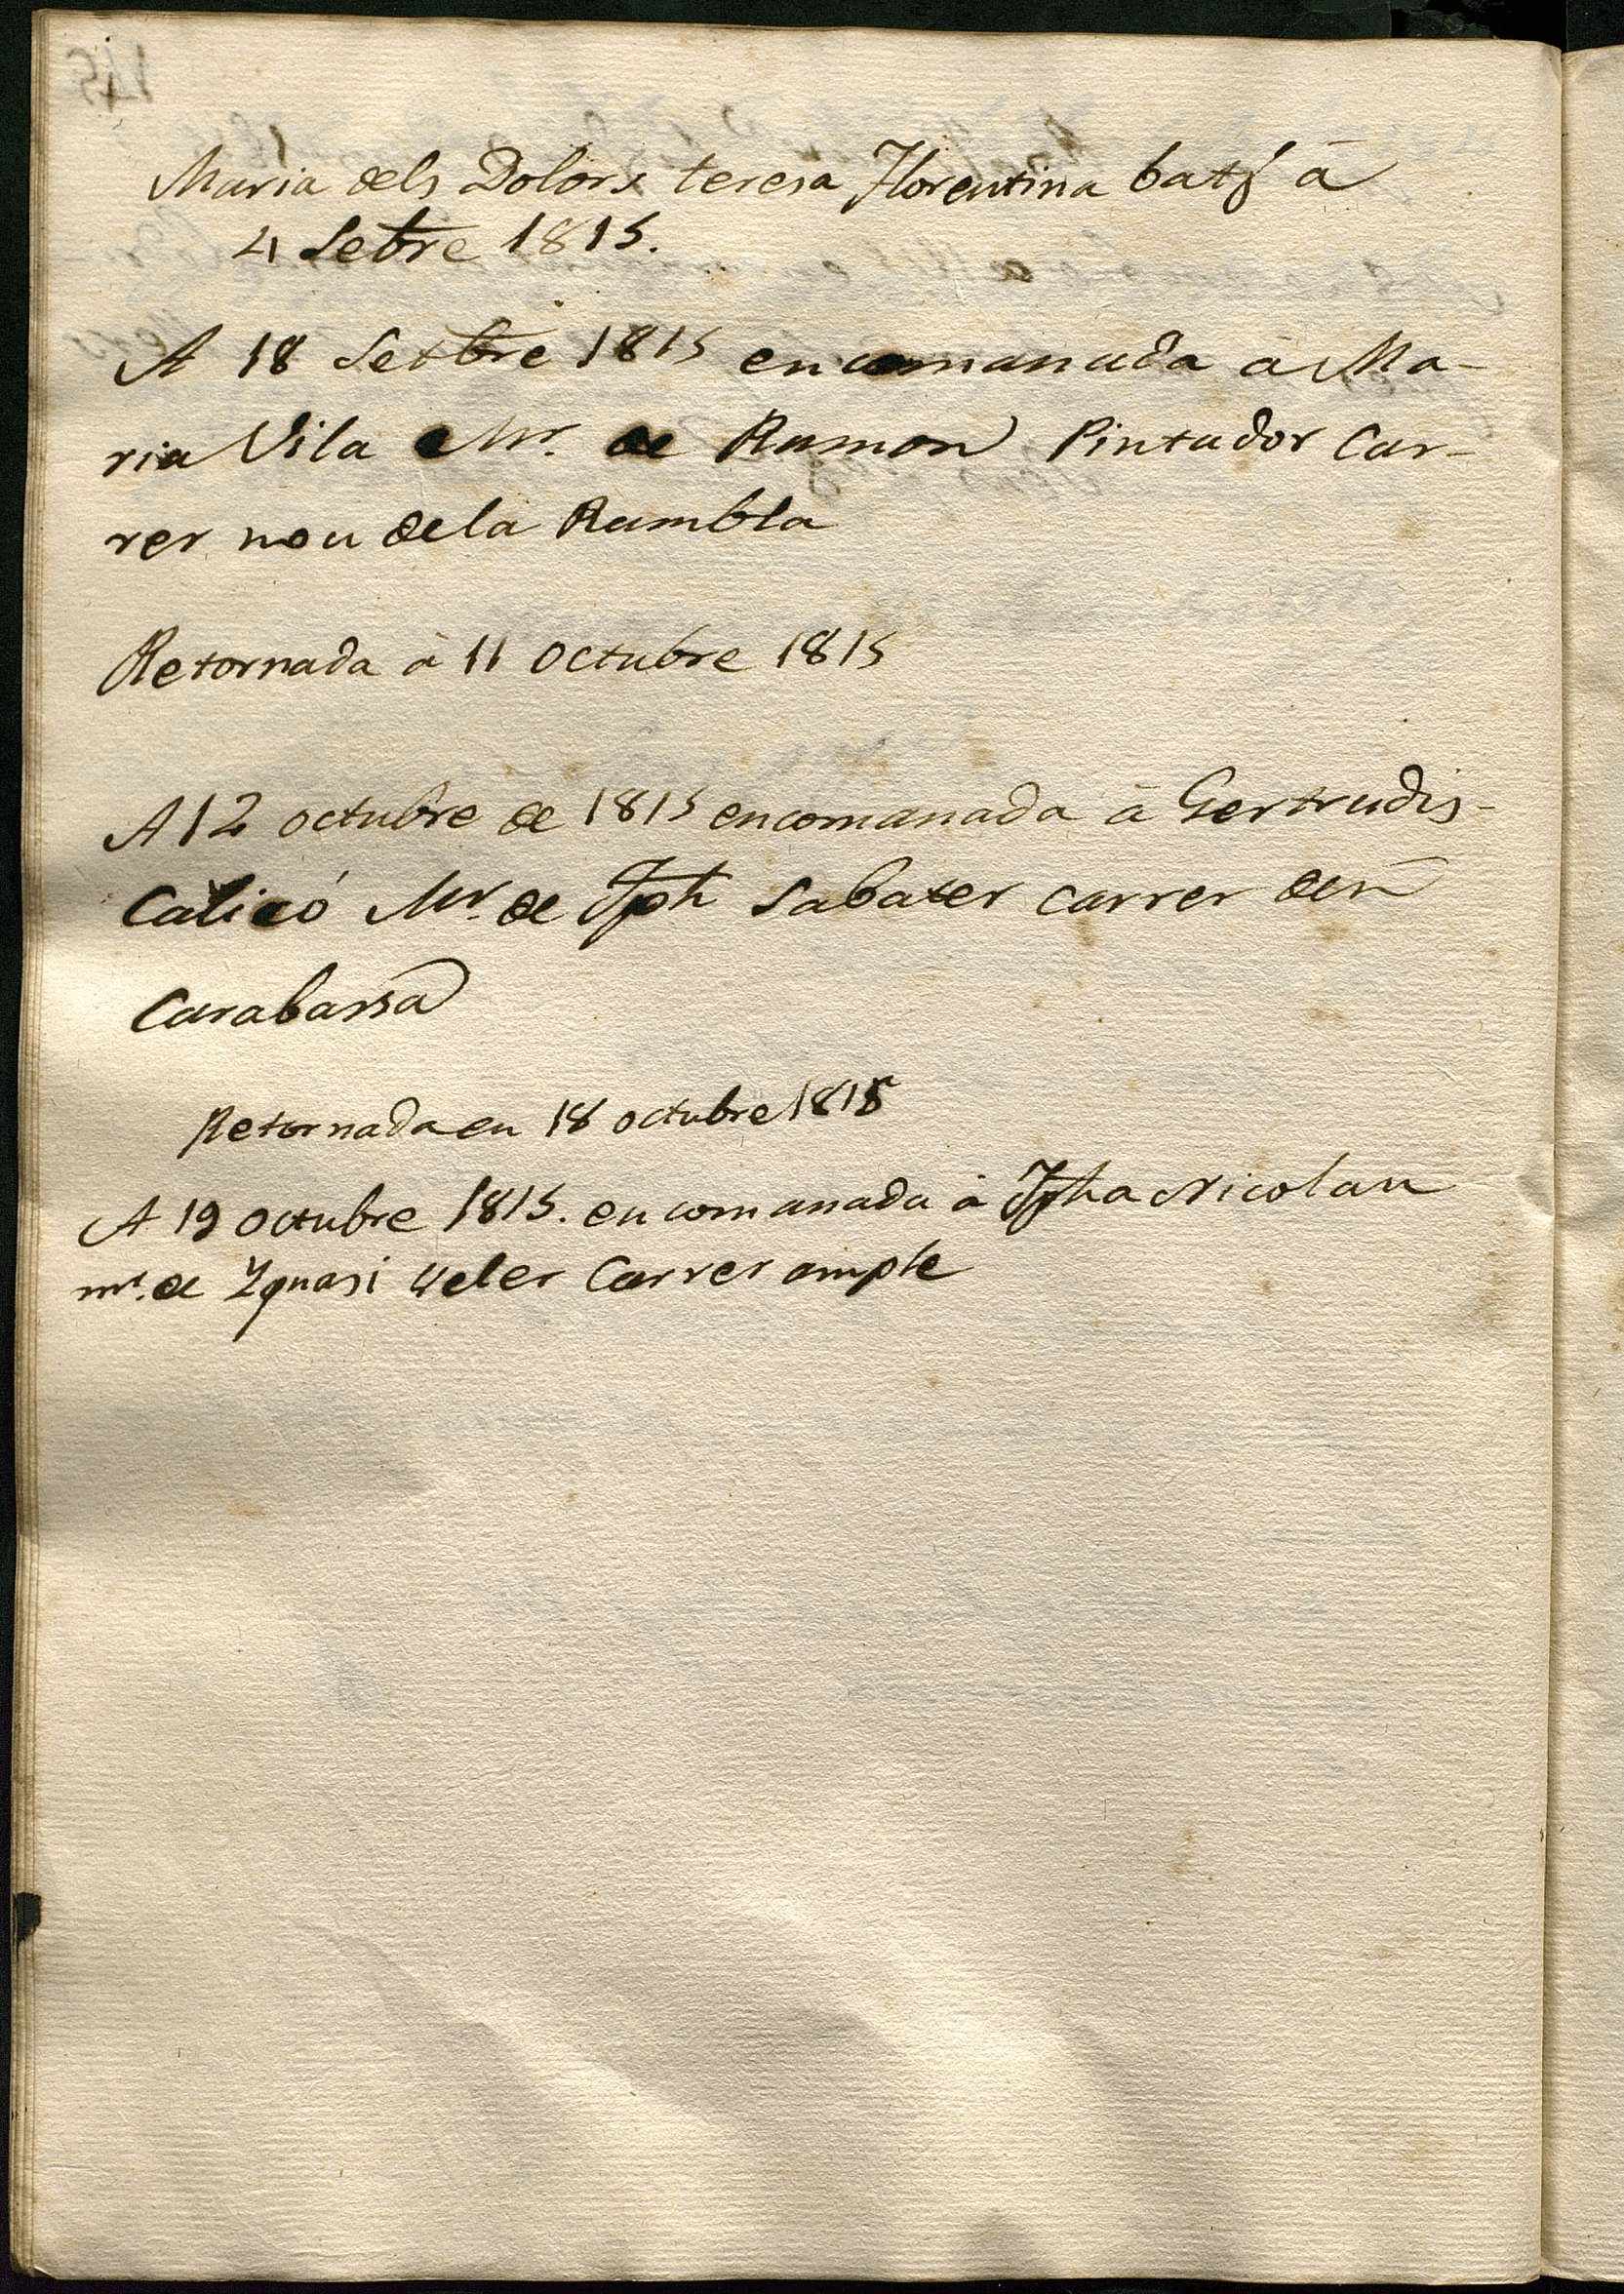 Maria dels Dolors teresa Florentina batj à
4 Setbre 1815.
A 18 Setbre 1815 encomanada à Ma-
ria Vila Mr. de Ramon Pintador Car-
rer nou dela Rambla
Retornada à 11 octubre 1815
A 12 octubre de 1815 encomanada à Gertrudis
Calicó Mr. de Jph Sabater carrer den
Carabassa
Retornada en 18 octubre 1815
A 19 octubre 1815. encomanada à Jpha Nicolau
mr. de Ygnasi Veler Carrer ample